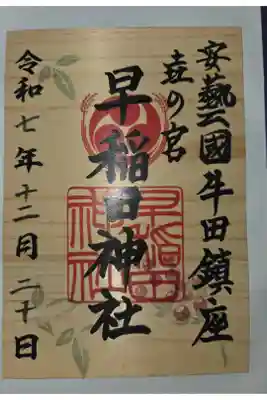 安藝國牛田鎮座
の宮
早稲田神社
早稲田
神社
令和七年十二月二十日